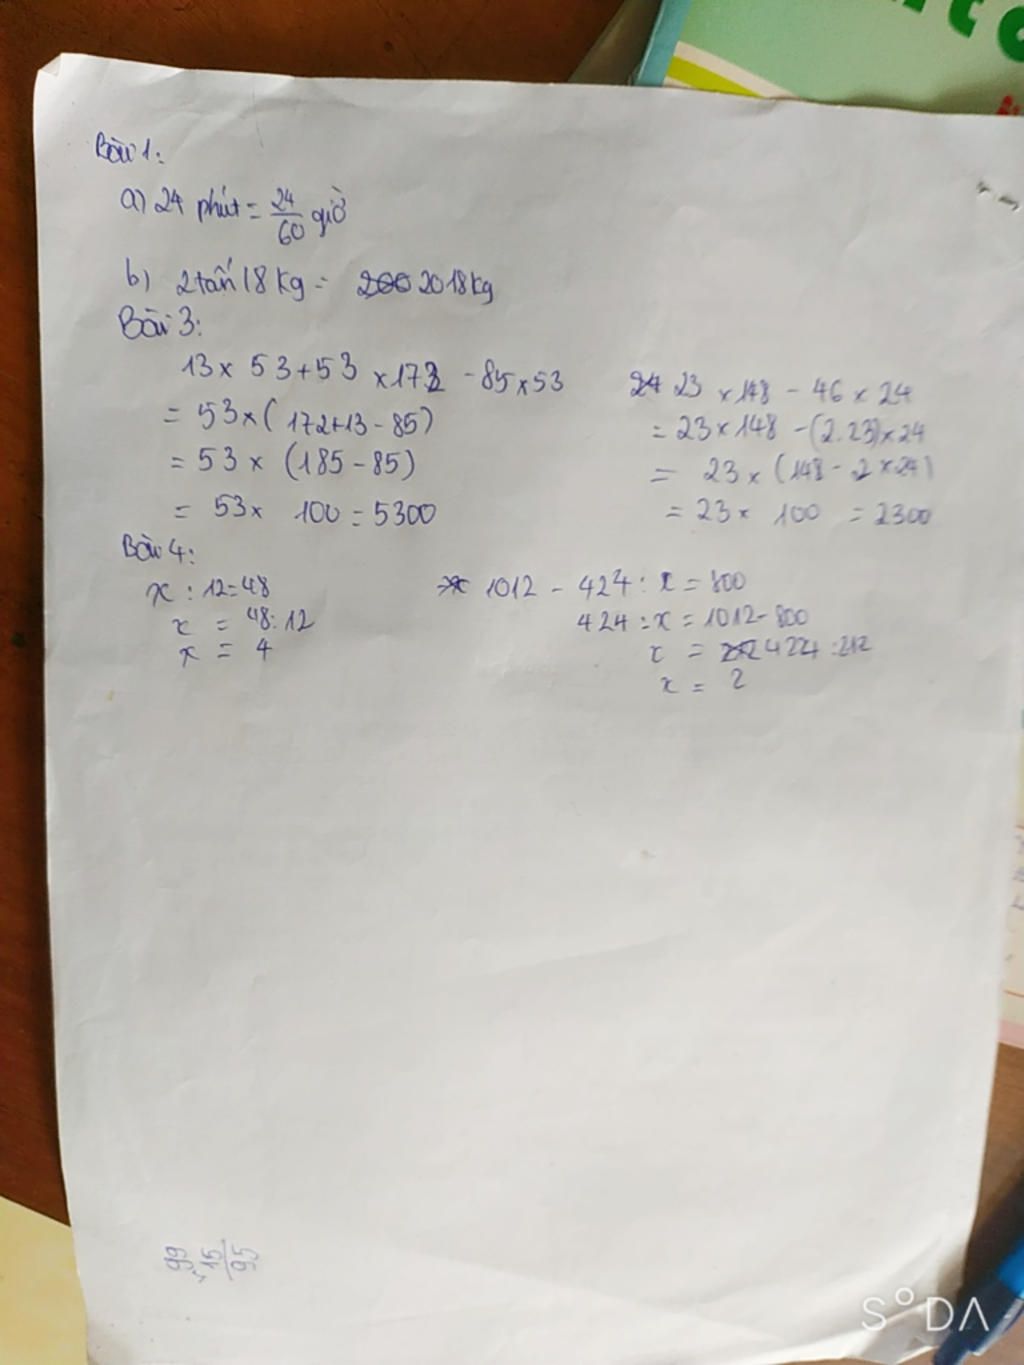 Bài 1:
a) 24 phút = 24/60 giờ
b) 2 tấn 18 kg = 200 2018 kg
Bài 3:
13 x 53 + 53 x 172 - 85 x 53
= 53 x ( 172 + 13 - 85)
= 53 x (185 - 85)
= 53 x 100 = 5300
24 23 x 148 - 46 x 24
= 23 x 148 - (2.23) x 24
= 23 x (148 - 2 x 24)
= 23 x 100 = 2300
Bài 4:
x : 12 = 48
x = 48 : 12
x = 4
1012 - 424 : x = 800
424 : x = 1012 - 800
x = 212 424 : 212
x = 2
99
x 15
95
SODA